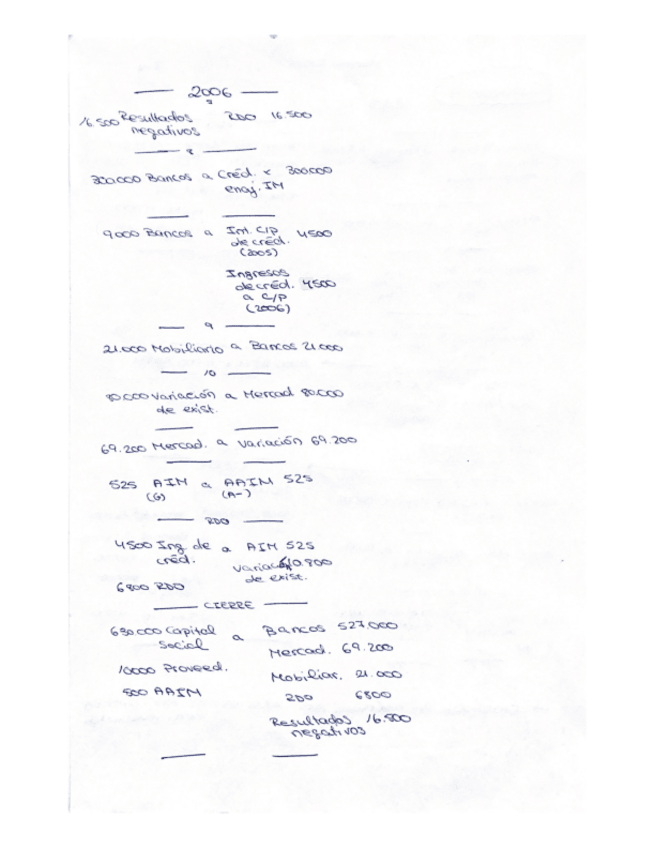 2006
16.500 Resultados RDO 16.500
negativos
8
300.000 Bancos a Créd. x 300.000
enaj. IM
9.000 Bancos a Int. C/P 4500
de créd.
(2005)
Ingresos
de créd. 4500
a C/P
(2006)
9
21.000 Mobiliario a Bancos 21.000
10
80.000 variación a Mercad 80.000
de exist.
69.200 Mercad. a variación 69.200
525 AIM a AAIM 525
(G) (A-)
RDO
4500 Ing. de a AIM 525
créd. variación 10.800
de exist.
6800 RDO
CIERRE
630.000 Capital a Bancos 527.000
Social Mercad. 69.200
10000 Proveed. Mobiliar. 21.000
500 AAIM RDO 6800
Resultados 16.500
negativos